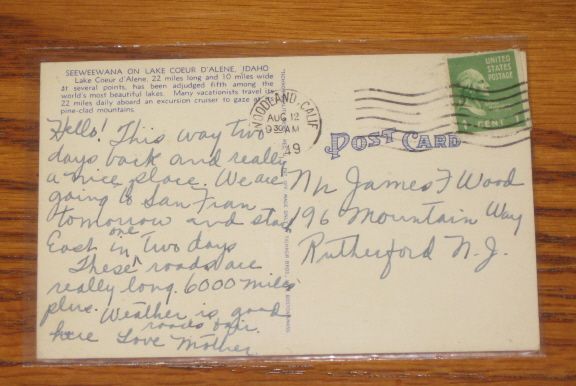 SEEWEEWANA ON LAKE COEUR D'ALENE, IDAHO
Lake Coeur d'Alene, 22 miles long and 10 miles wide
at several points, has been adjudged fifth among the
world's most beautiful lakes. Many vacationists travel
22 miles daily aboard an excursion cruiser to gaze at
pine-clad mountains.
WOODLAND, CALIF
AUG 12
9 30 AM
49
UNITED
STATES
POSTAGE
1 CENT 1
POST CARD
Hello! This way two
days back and really
a nice place. We are
going to San Fran
tomorrow and start
East in one two days
These roads are
really long. 6000 miles
plus. Weather is good
here roads o.k.
Love Mother
Mr James F Wood
196 Mountain Way
Rutherford N.J.